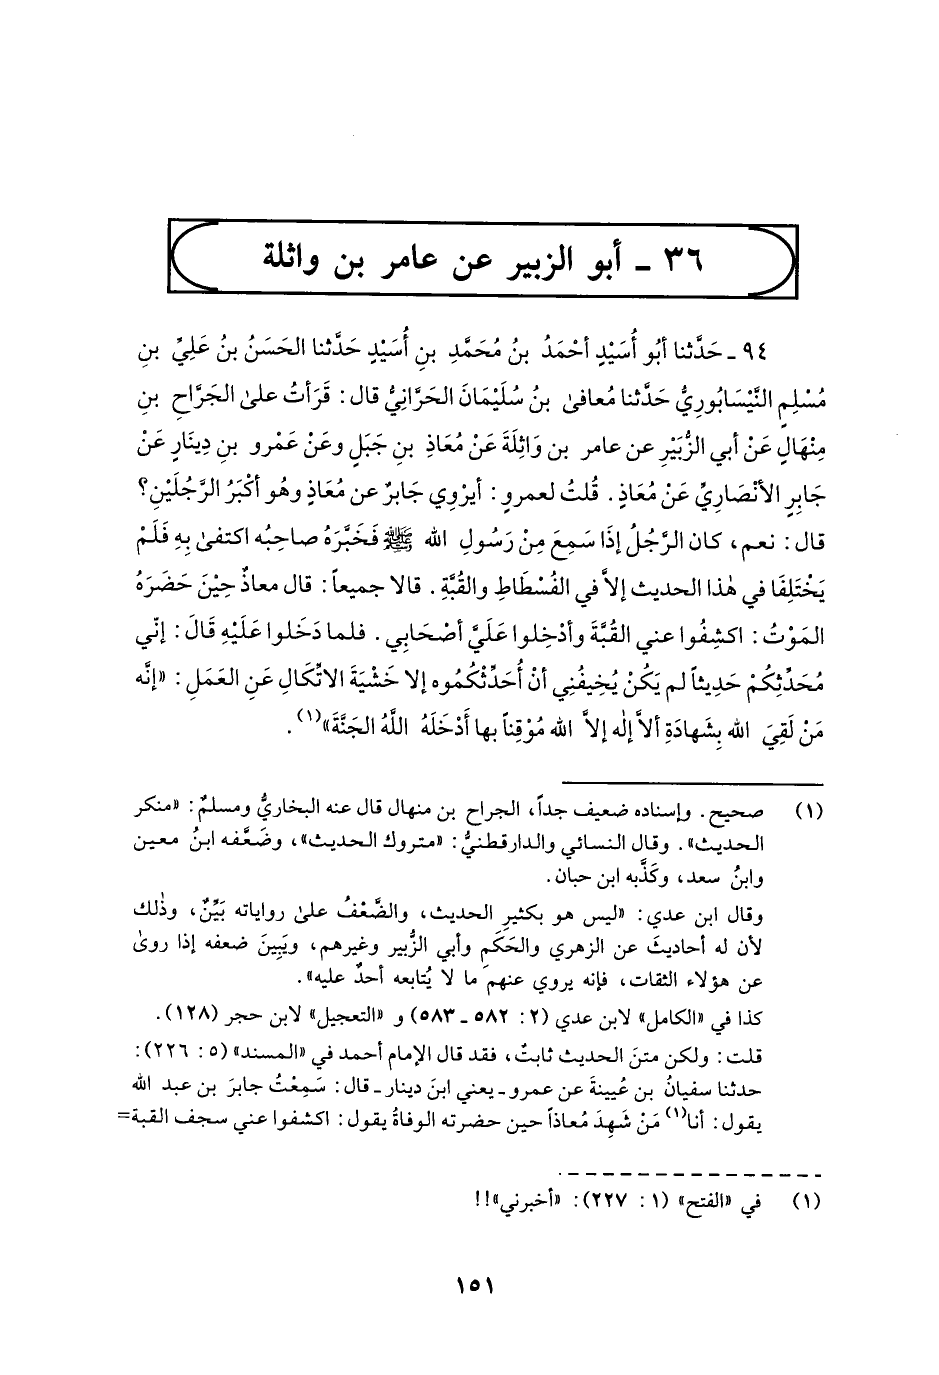 ٣٦ ـ أبو الزبير عن عامر بن واثلة
٩٤ ـ حَدَّثنا أبُو أُسَيْدٍ أحْمَدُ بنُ مُحَمَّدِ بنِ أُسَيْدٍ حَدَّثنا الحَسَنُ بنُ عَلِيِّ بنِ
مُسْلِمٍ النَّيْسَابُورِيُّ حَدَّثنا مُعافىٰ بنُ سُلَيْمَانَ الحَرَّانِيُّ قال: قَرَأتُ علىٰ الجَرَّاحِ بنِ
مِنْهَالٍ عَنْ أبي الزُّبَيْرِ عن عامر بن وَاثِلَةَ عَنْ مُعَاذِ بنِ جَبَلٍ وعَنْ عَمْرو بنِ دِينَارٍ عَنْ
جَابِرٍ الأنْصَارِيِّ عَنْ مُعَاذٍ. قُلتُ لعمرٍو: أيَرْوِي جَابرٌ عن مُعَاذٍ وهُو أكْبَرُ الرَّجُلَيْنِ؟
قال: نعم، كان الرَّجُلُ إذَا سَمِعَ مِنْ رَسُولِ الله ﷺ فَخَبَّرَهُ صاحِبُه اكتفىٰ بِهِ فَلَمْ
يَخْتَلِفَا في هٰذا الحديث إلاَّ في الفُسْطَاطِ والقُبَّةِ. قالا جميعاً: قال معاذٌ حِيْنَ حَضَرَهُ
المَوْتُ: اكشِفُوا عني القُبَّةَ وأدْخِلوا عَلَيَّ أصْحَابِي. فلما دَخَلوا عَلَيْهِ قَالَ: إنّي
مُحَدِّثِكُمْ حَدِيثاً لم يَكُنْ يُخِيفُنِي أنْ أُحَدِّثكُمُوه إلا خَشْيَةَ الاتِّكَالِ عَنِ العَمَلِ: «إنَّه
مَنْ لَقِيَ الله بِشَهادَةِ ألاَّ إلٰه إلاَّ الله مُوْقِناً بها أدْخَلَهُ اللَّهُ الجَنَّةَ»(١).
(١) صحيح. وإسناده ضعيف جداً، الجراح بن منهال قال عنه البخاريُّ ومسلمٌ: «منكر
الحديث». وقال النسائي والدارقطنيُّ: «متروك الحديث»، وضَعَّفه ابنُ معين
وابنُ سعد، وكَذَّبه ابن حبان.
وقال ابن عدي: «ليس هو بكثيرِ الحديث، والضَّعْفُ علىٰ رواياته بَيِّنٌ، وذٰلك
لأن له أحاديثَ عن الزهري والحَكَمِ وأبي الزُّبير وغيرهم، ويَبِينَ ضعفه إذا روىٰ
عن هؤلاء الثقات، فإنه يروي عنهم ما لا يُتابعه أحدٌ عليه».
كذا في «الكامل» لابن عدي (٢: ٥٨٢ ـ ٥٨٣) و «التعجيل» لابن حجر (١٢٨).
قلت: ولكن متنَ الحديث ثابتٌ، فقد قال الإمام أحمد في «المسند» (٥: ٢٢٦):
حدثنا سفيانُ بن عُيينةَ عن عمرو ـ يعني ابنَ دينار ـ قال: سَمِعْتُ جابرَ بن عبد الله
يقول: أنا(١) مَنْ شَهِدَ مُعاذاً حين حضرته الوفاةُ يقول: اكشفوا عني سجف القبة=
(١) في «الفتح» (١: ٢٢٧): «أخبرني»!!
١٥١